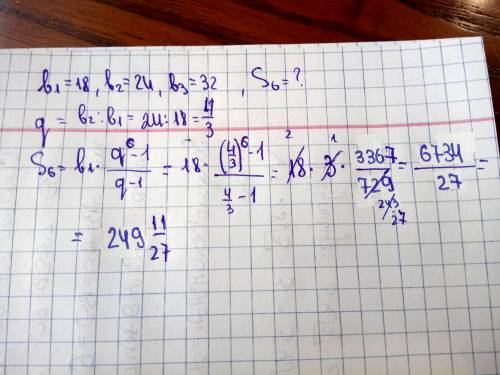 b₁=18, b₂=24, b₃=32, S₆=?
q = b₂:b₁ = 24:18 = 4/3
S₆ = b₁· (q⁶-1)/(q-1) = 18· ((4/3)⁶-1)/(4/3-1) = 18 2 · 3 1 · 3367/729 243 27 = 6734/27 =
= 249 11/27